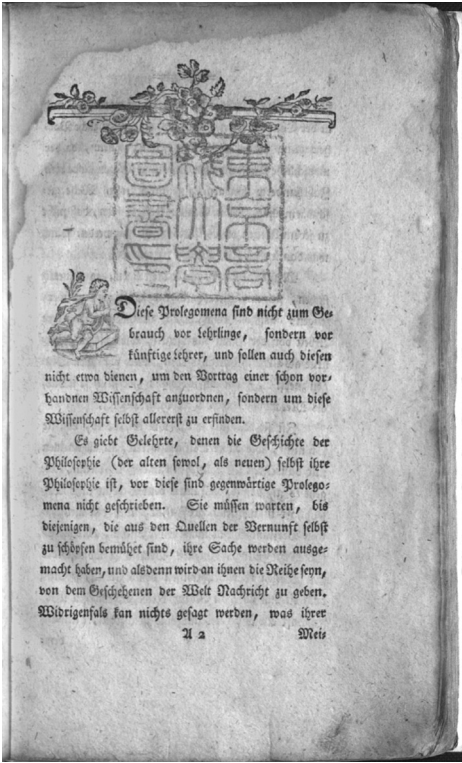 Diese Prolegomena sind nicht zum Ge-
brauch vor Lehrlinge, sondern vor
künftige Lehrer, und sollen auch diesen
nicht etwa dienen, um den Vortrag einer schon vor-
handnen Wissenschaft anzuordnen, sondern um diese
Wissenschaft selbst allererst zu erfinden.
Es giebt Gelehrte, denen die Geschichte der
Philosophie (der alten sowol, als neuen) selbst ihre
Philosophie ist, vor diese sind gegenwärtige Prolego-
mena nicht geschrieben. Sie müssen warten, bis
diejenigen, die aus den Quellen der Vernunft selbst
zu schöpfen bemühet sind, ihre Sache werden ausge-
macht haben, und alsdenn wird an ihnen die Reihe seyn,
von dem Geschehenen der Welt Nachricht zu geben.
Widrigenfals kan nichts gesagt werden, was ihrer
A 2 Mei-